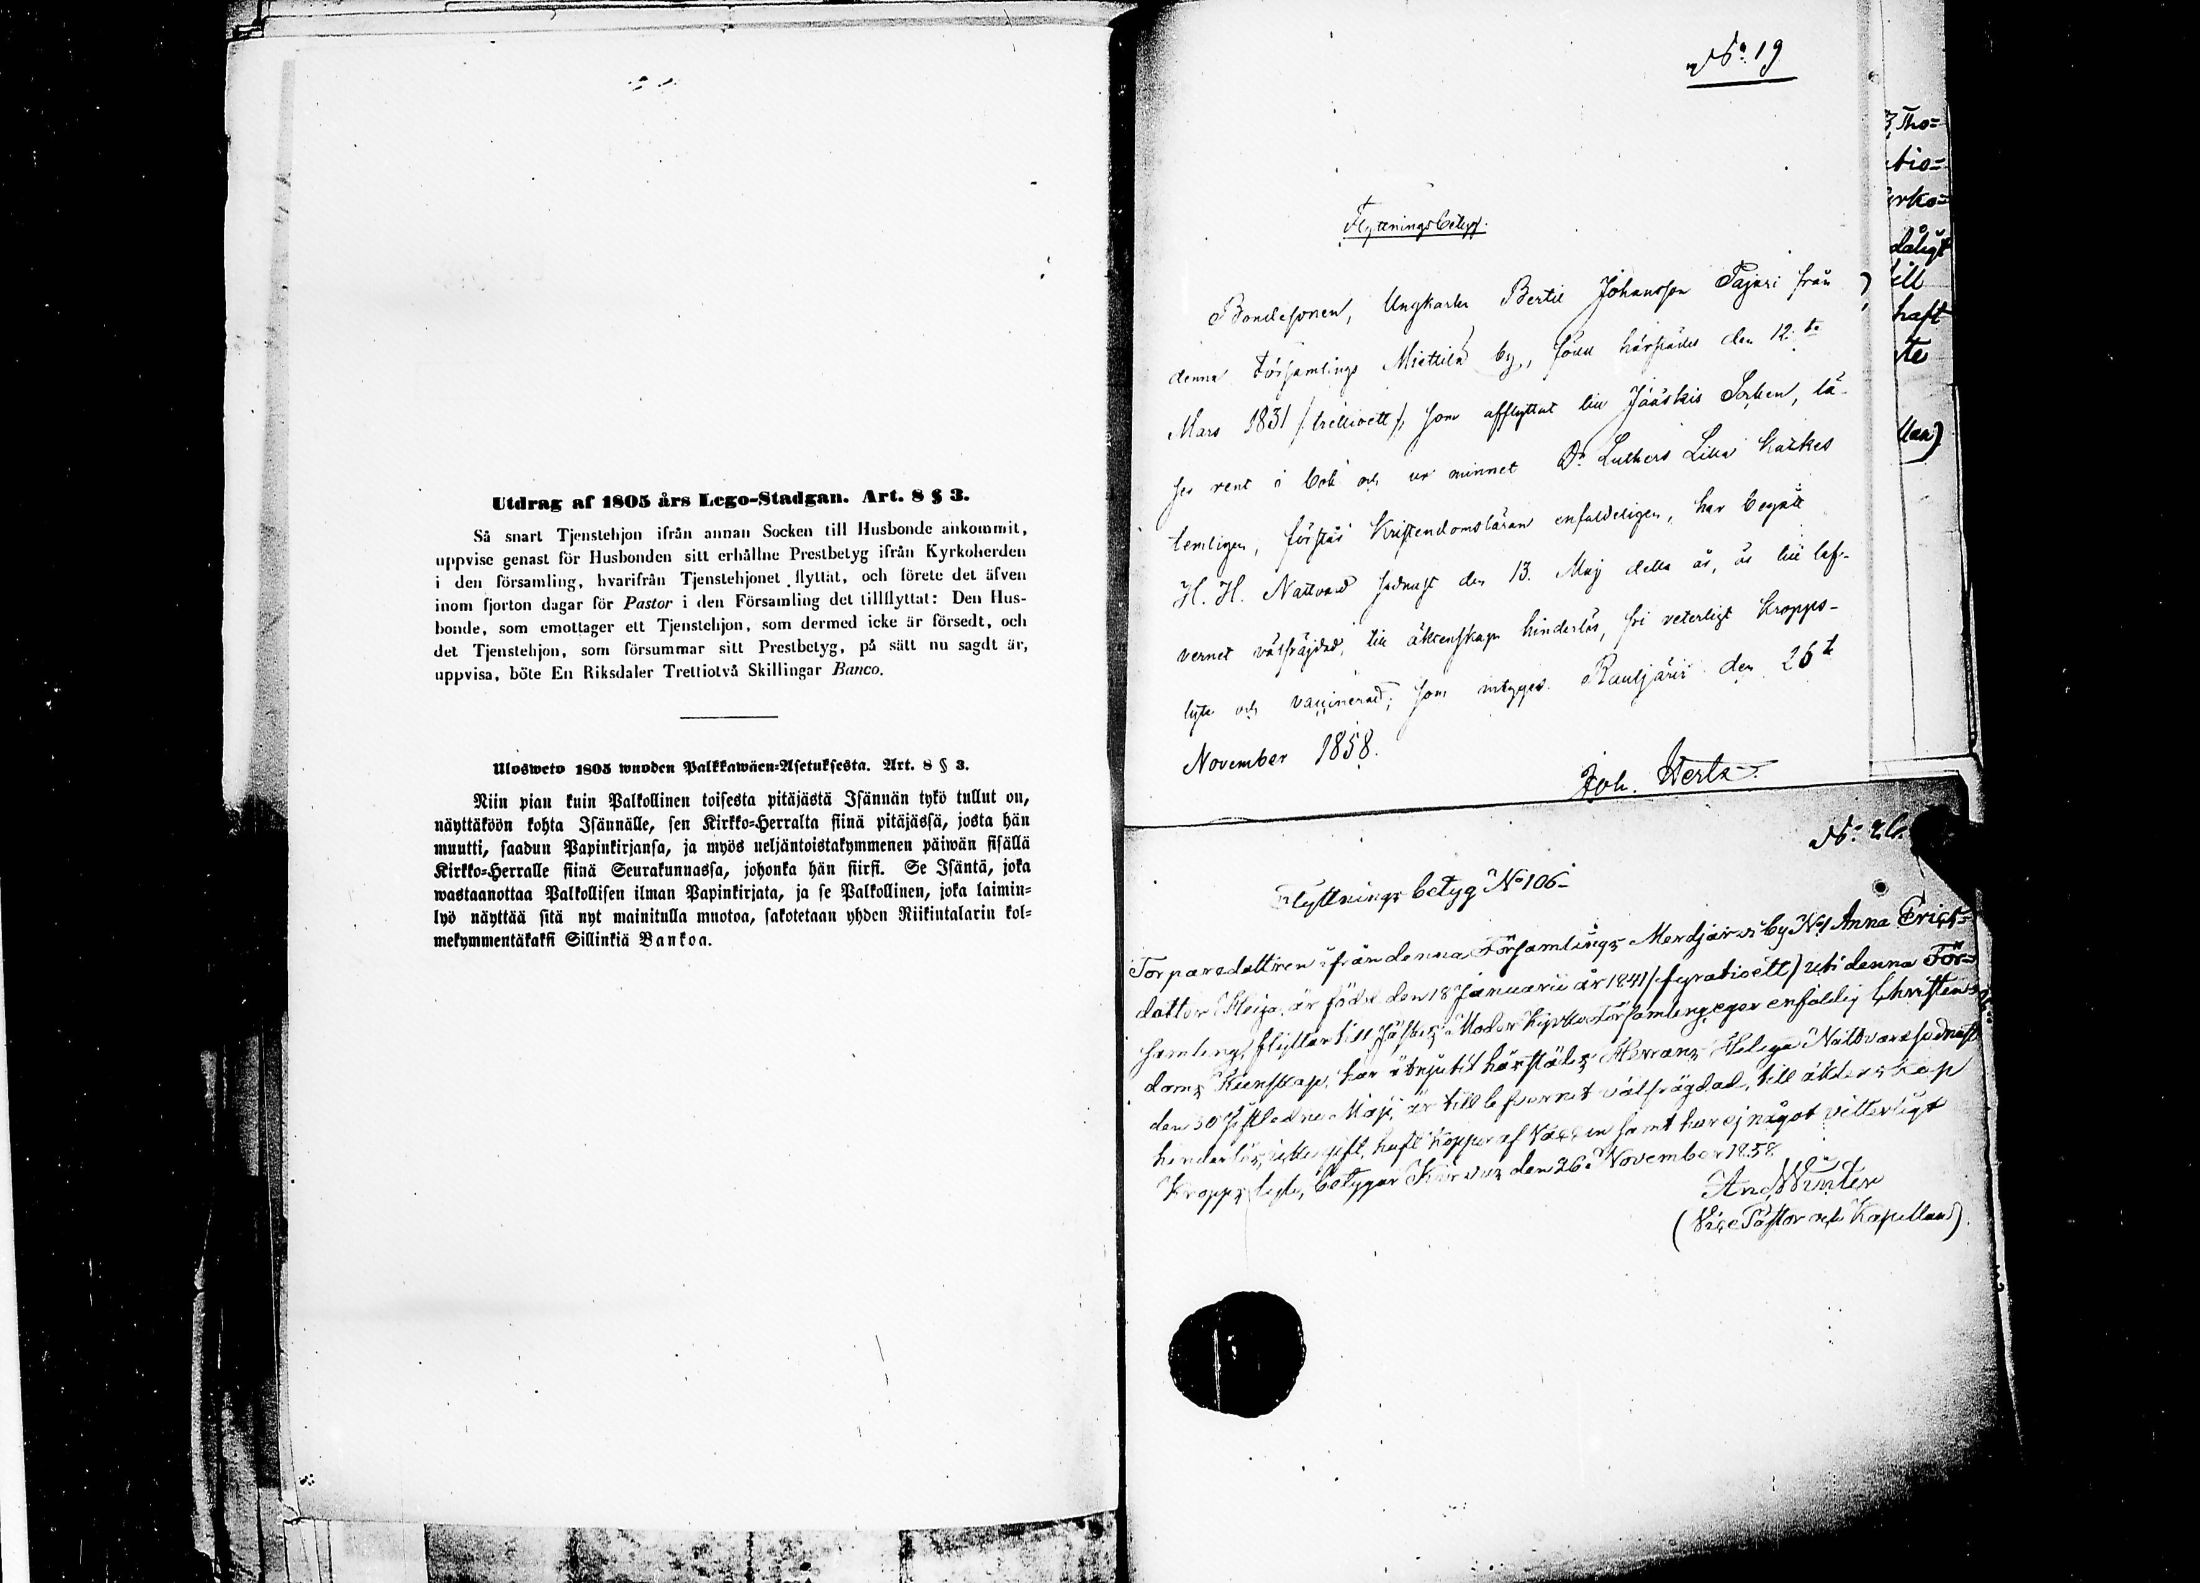 Utdrag af 1805 års Lego-Stadgan. Art. 8 § 3.
Så snart Tjenstehjon ifrån annan Socken till Husbonde ankommit,
uppvise genast för Husbonden sitt erhållne Prestbetyg ifrån Kyrkoherden
i den församling, hvarifrån Tjenstehjonet flyttat, och förete det äfven
inom fjorton dagar för Pastor i den Församling det tillflyttat: Den Hus-
bonde, som emottager ett Tjenstehjon, som dermed icke är försedt, och
det Tjenstehjon, som försummar sitt Prestbetyg, på sätt nu sagdt är,
uppvisa, böte En Riksdaler Trettiotvå Skillingar Banco.
Ulosweto 1805 wuoden Palkkawäen-Asetuksesta. Art. 8 § 3.
Niin pian kuin Palkollinen toisesta pitäjästä Isännän tykö tullut on,
näyttäköön kohta Isännälle, sen Kirkko-Herralta siinä pitäjässä, josta hän
muutti, saadun Papinkirjansa, ja myös neljäntoistakymmenen päiwän sisällä
Kirkko-Herralle siinä Seurakunnassa, johonka hän siirsi. Se Isäntä, joka
wastaanottaa Palkollisen ilman Papinkirjata, ja se Palkollinen, joka laimin-
lyö näyttää sitä nyt mainitulla muotoa, sakotetaan yhden Riikintalarin kol-
mekymmentäkaksi Sillinkiä Bankoa.
No. 19
Flyttningsbetyg.
Bondesonen, Ungkarlen Bertil Johansson Pajari från
denna Församlings Miettilä by, född härstädes den 12.te
Mars 1831 /:trettioett:/, som afflyttat till Jääskis Socken, lä-
ser rent i bok och ur minnet Dr Luthers Lilla Katkes
temligen, förstår Kristendomsläran enfaldeligen, har begått
H. H. Nattvard sednast den 13. Maj detta år, är till lef-
vernet välfräjdad, till äktenskap hinderlös, fri veterligt kropps-
lyte och vaccinerad; som intygas. Rautjärvi den 26t
November 1858.
Joh. Hertz
3, Tho=
tio=
dåligt
till
haft
te
No. 26.
Flyttnings betyg No 106
Torparedottren ifrån denna Församlings Merdjärvi by No 1 Anna Erichs-
dotter är född den 18 Januarii år 1841 /:fyratioett:/ uti denna För-
samling, flyttar till Jäskes Moder Kyrko Församling, eger enfaldig Christen-
doms Kunskap, har åtnjutit härstädes Herrans Heliga Nattvard sednast
den 30 sistledne Maji, är till lefvernet välfrägdad, till äktenskap
hinderlös, icke gift, haft koppor af Vaccin samt har ej något vitterligt
Kropps lyte, betygar Kirvus den 26 November 1858.
And Winter
(Vice Pastor och Kapellan).